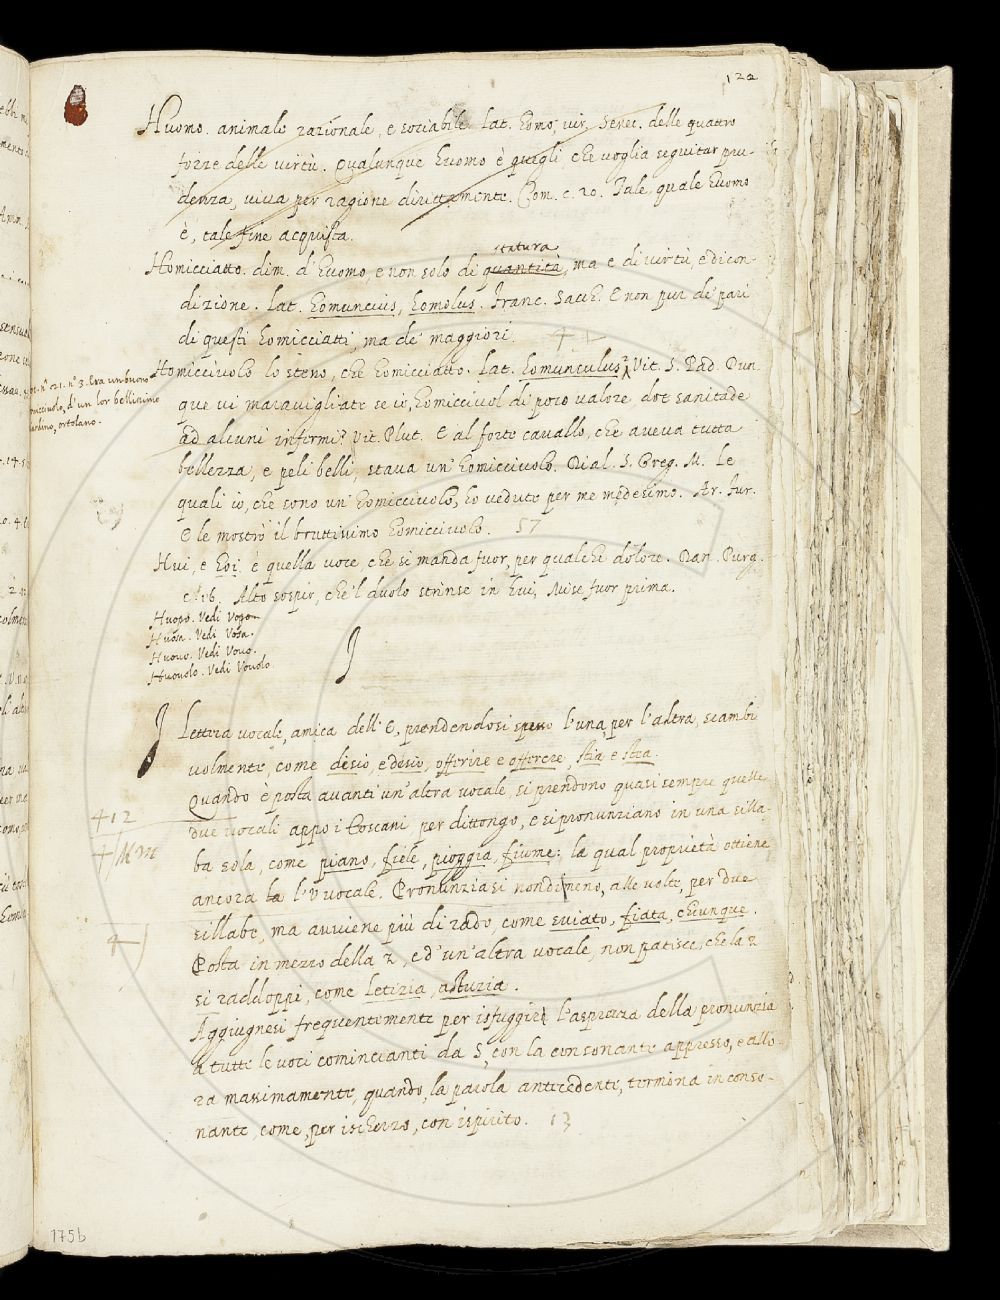 122
Huomo. animale razionale, e sociabile. Lat. homo, vir. Senec. delle quattro
forze delle virtù. Qualunque huomo è quegli che voglia seguitar pru-
denza, viva per ragione dirittamente. Com. c. 20. Tale, quale huomo
è, tale fine acquista.
statura
Homicciatto. dim. d'huomo, e non solo di quantità, ma e di virtù, e di con
dizione. Lat. homuncius, homolus. Franc. Sacch. E non pur de' pari
di questi homicciatti, ma de' maggiori.
Homicciuolo lo stesso, che homicciatto. Lat. homunculus. Vit. S. Pad. Dun
que vi maravigliate se io, homicciuol di poco valore, dot sanitade
ad alcuni infermi? Vit. Plut. E al forte cavallo, che aveva tutta
bellezza, e peli belli, stava un' homicciuolo. Dial. S. Greg. M. Le
quali io, che sono un' homicciuolo, ho vedute per me medesimo. Ar. Fur.
E le mostrò il bruttissimo homicciuolo. 57
Hui, e hoi, è quella voce, che si manda fuor, per qualche dolore. Dan. Purg.
c. 16. Alto sospir, che'l duolo strinse in hui, Mise fuor prima.
Huopo. Vedi Vopo
Huosa. Vedi Vosa.
Huovo. Vedi Vovo.
Huovolo. Vedi Vovolo
n.º 3. Era un buono
homicciuolo, d'un lor bellissimo
giardino, ortolano.
I
I Lettera vocale, amica dell' E, prendendosi spesso l'una, per l'altra, scambi
volmente, come disio, e desio, offerire e offerere, stia, e stea.
Quando è posta avanti un'altra vocale, si prendono quasi sempre quelle
due vocali appo i Toscani per dittongo, e si pronunziano in una silla-
ba sola, come piano, fiele, pioggia, fiume: la qual proprietà ottiene
ancora la l'V vocale. Pronunziasi nondimeno, alle volte, per due
sillabe, ma avviene più di rado, come sviato, fiata, chiunque.
Posta in mezzo della z, e d'un'altra vocale, non patisce, che la z
si raddoppi, come Letizia, astuzia.
Aggiugnesi frequentemente per isfuggire l'asprezza della pronunzia
a tutte le voci comincianti da S, con la consonante appresso, e allo-
ra massimamente, quando, la parola antecedente, termina in conso-
nante, come, per ischerzo, con ispirito. 13
412
175b